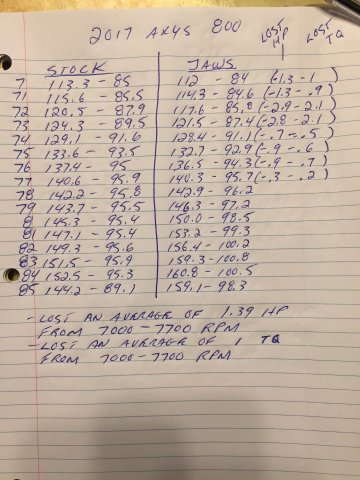 2017 AXYS 800
LOST HP LOST TQ
STOCK JAWS
7 113.3 - 85 112 - 84 (-1.3 - 1)
71 115.6 - 85.5 114.3 - 84.6 (-1.3 - .9)
72 120.5 - 87.9 117.6 - 85.8 (-2.9 - 2.1)
73 124.3 - 89.5 121.5 - 87.4 (-2.8 - 2.1)
74 129.1 - 91.6 128.4 - 91.1 (-.7 - .5)
75 133.6 - 93.5 132.7 - 92.9 (-.9 - .6)
76 137.4 - 95 136.5 - 94.3 (-.9 - .7)
77 140.6 - 95.9 140.3 - 95.7 (-.3 - .2)
78 142.2 - 95.8 142.9 - 96.2
79 143.7 - 95.5 146.3 - 97.2
8 145.3 - 95.4 150.0 - 98.5
81 147.1 - 95.4 153.2 - 99.3
82 149.3 - 95.6 156.4 - 100.2
83 151.5 - 95.9 159.3 - 100.8
84 152.5 - 95.3 160.8 - 100.5
85 144.2 - 89.1 159.1 - 98.3
- LOST AN AVERAGE OF 1.39 HP
FROM 7000 - 7700 RPM
- LOST AN AVERAGE OF 1 TQ
FROM 7000 - 7700 RPM